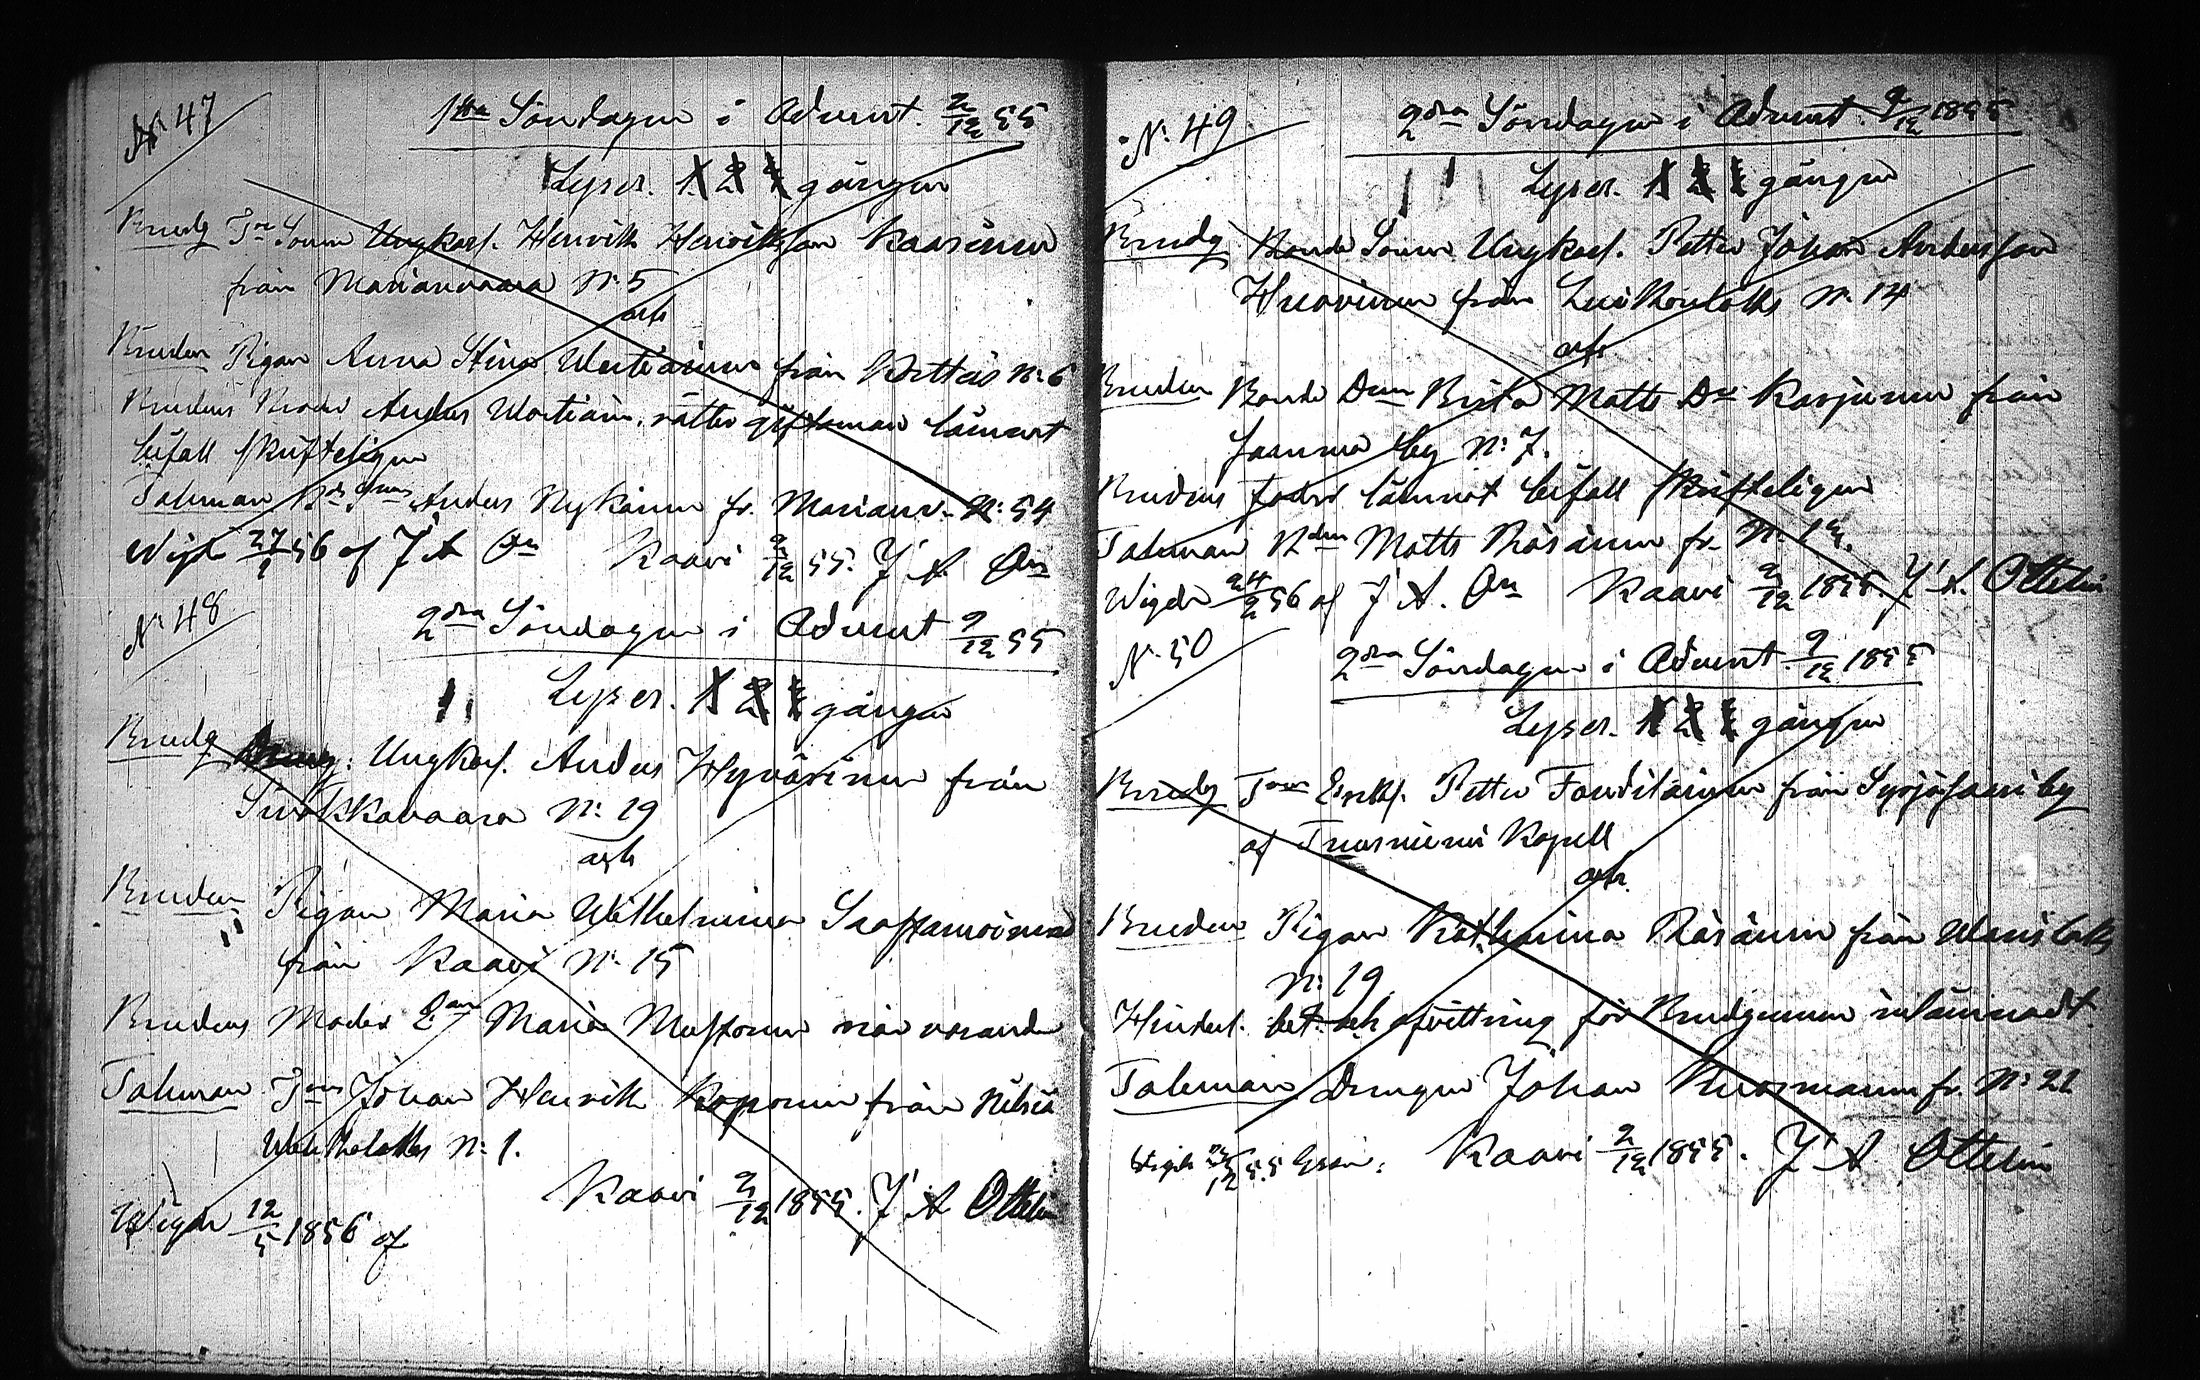 N: 47
1sta Söndagen i Advent. 2/12 55
Lyses. 1. 2 3 gången
Brudg Tre Sonen Ungkarl. Henrik Henriksson Kaasinen
från Marianvaara N: 5
och
Bruden Pigan Anna Stina Wartiainen från N: 6
Brudens Broder Anders Wartiain. rätter giftoman lämnat
bifall skrifteligen
Talman Anders Nykänen fr. Marianv. N: 54
Wigde 27/1 56 af J A On Kaavi 2/12 55. J A. On
N: 48
2dra Söndagen i Advent 9/12 55
Lyses. 1 2 3 gången
Brudg Ungkarl. Anders Hyvärinen från
Sivakkavaara N: 19
och
Bruden Pigan Maria Wilhelmina
från Kaavi N: 15
Brudens Moder Maria Mustonen när varande
Talman Johan Henrik Koponen från Nilsiä
N: 1.
Kaavi 2/12 1855. J A Ottelin
Wigde 12/5 1856 af
N: 49
2dra Söndagen i Advent. 9/12 1855
Lyses. 1 2 3 gången
Brudg Bonde Sonen Ungkarl. Petter Johan Andersson
Huovinen från Luikonlaks N: 14
och
Bruden Bonde Dren Brita Matts Dr Karjunen från
samma by N: 7.
Brudens fader lämnat bifall skrifteligen
Talman Bden Matts Räsänen fr. N:
Wigde 24/2 56 af J A. On Kaavi 2/12 1855. J A. Ottelin
N: 50
2dra Söndagen i Advent 9/12 1855
Lyses. 1 2 3 gången
Brudg Enkl. Petter från Syrjäsaari by
af Tuusniemi Kapell
och
Bruden Pigan Katharina Räsänen från
N: 19.
Hindersl. bet. och afvittring för Brudgummen inlämnadt.
Talman Drengen Johan Kuosmanen fr. N: 22
Kaavi 2/12 1855. J A Ottelin